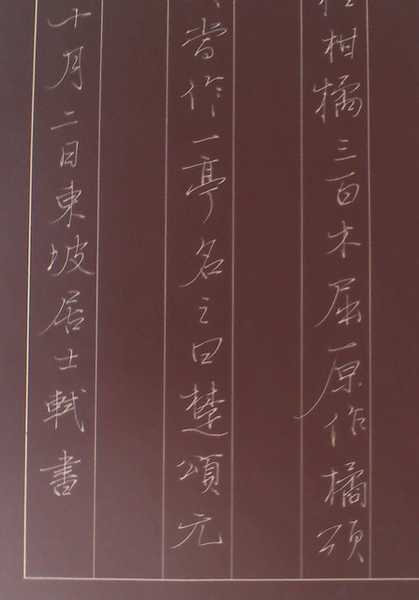 柑橘三百木屈原作橘頌
當作一亭名之曰楚頌元
十月二日東坡居士軾書